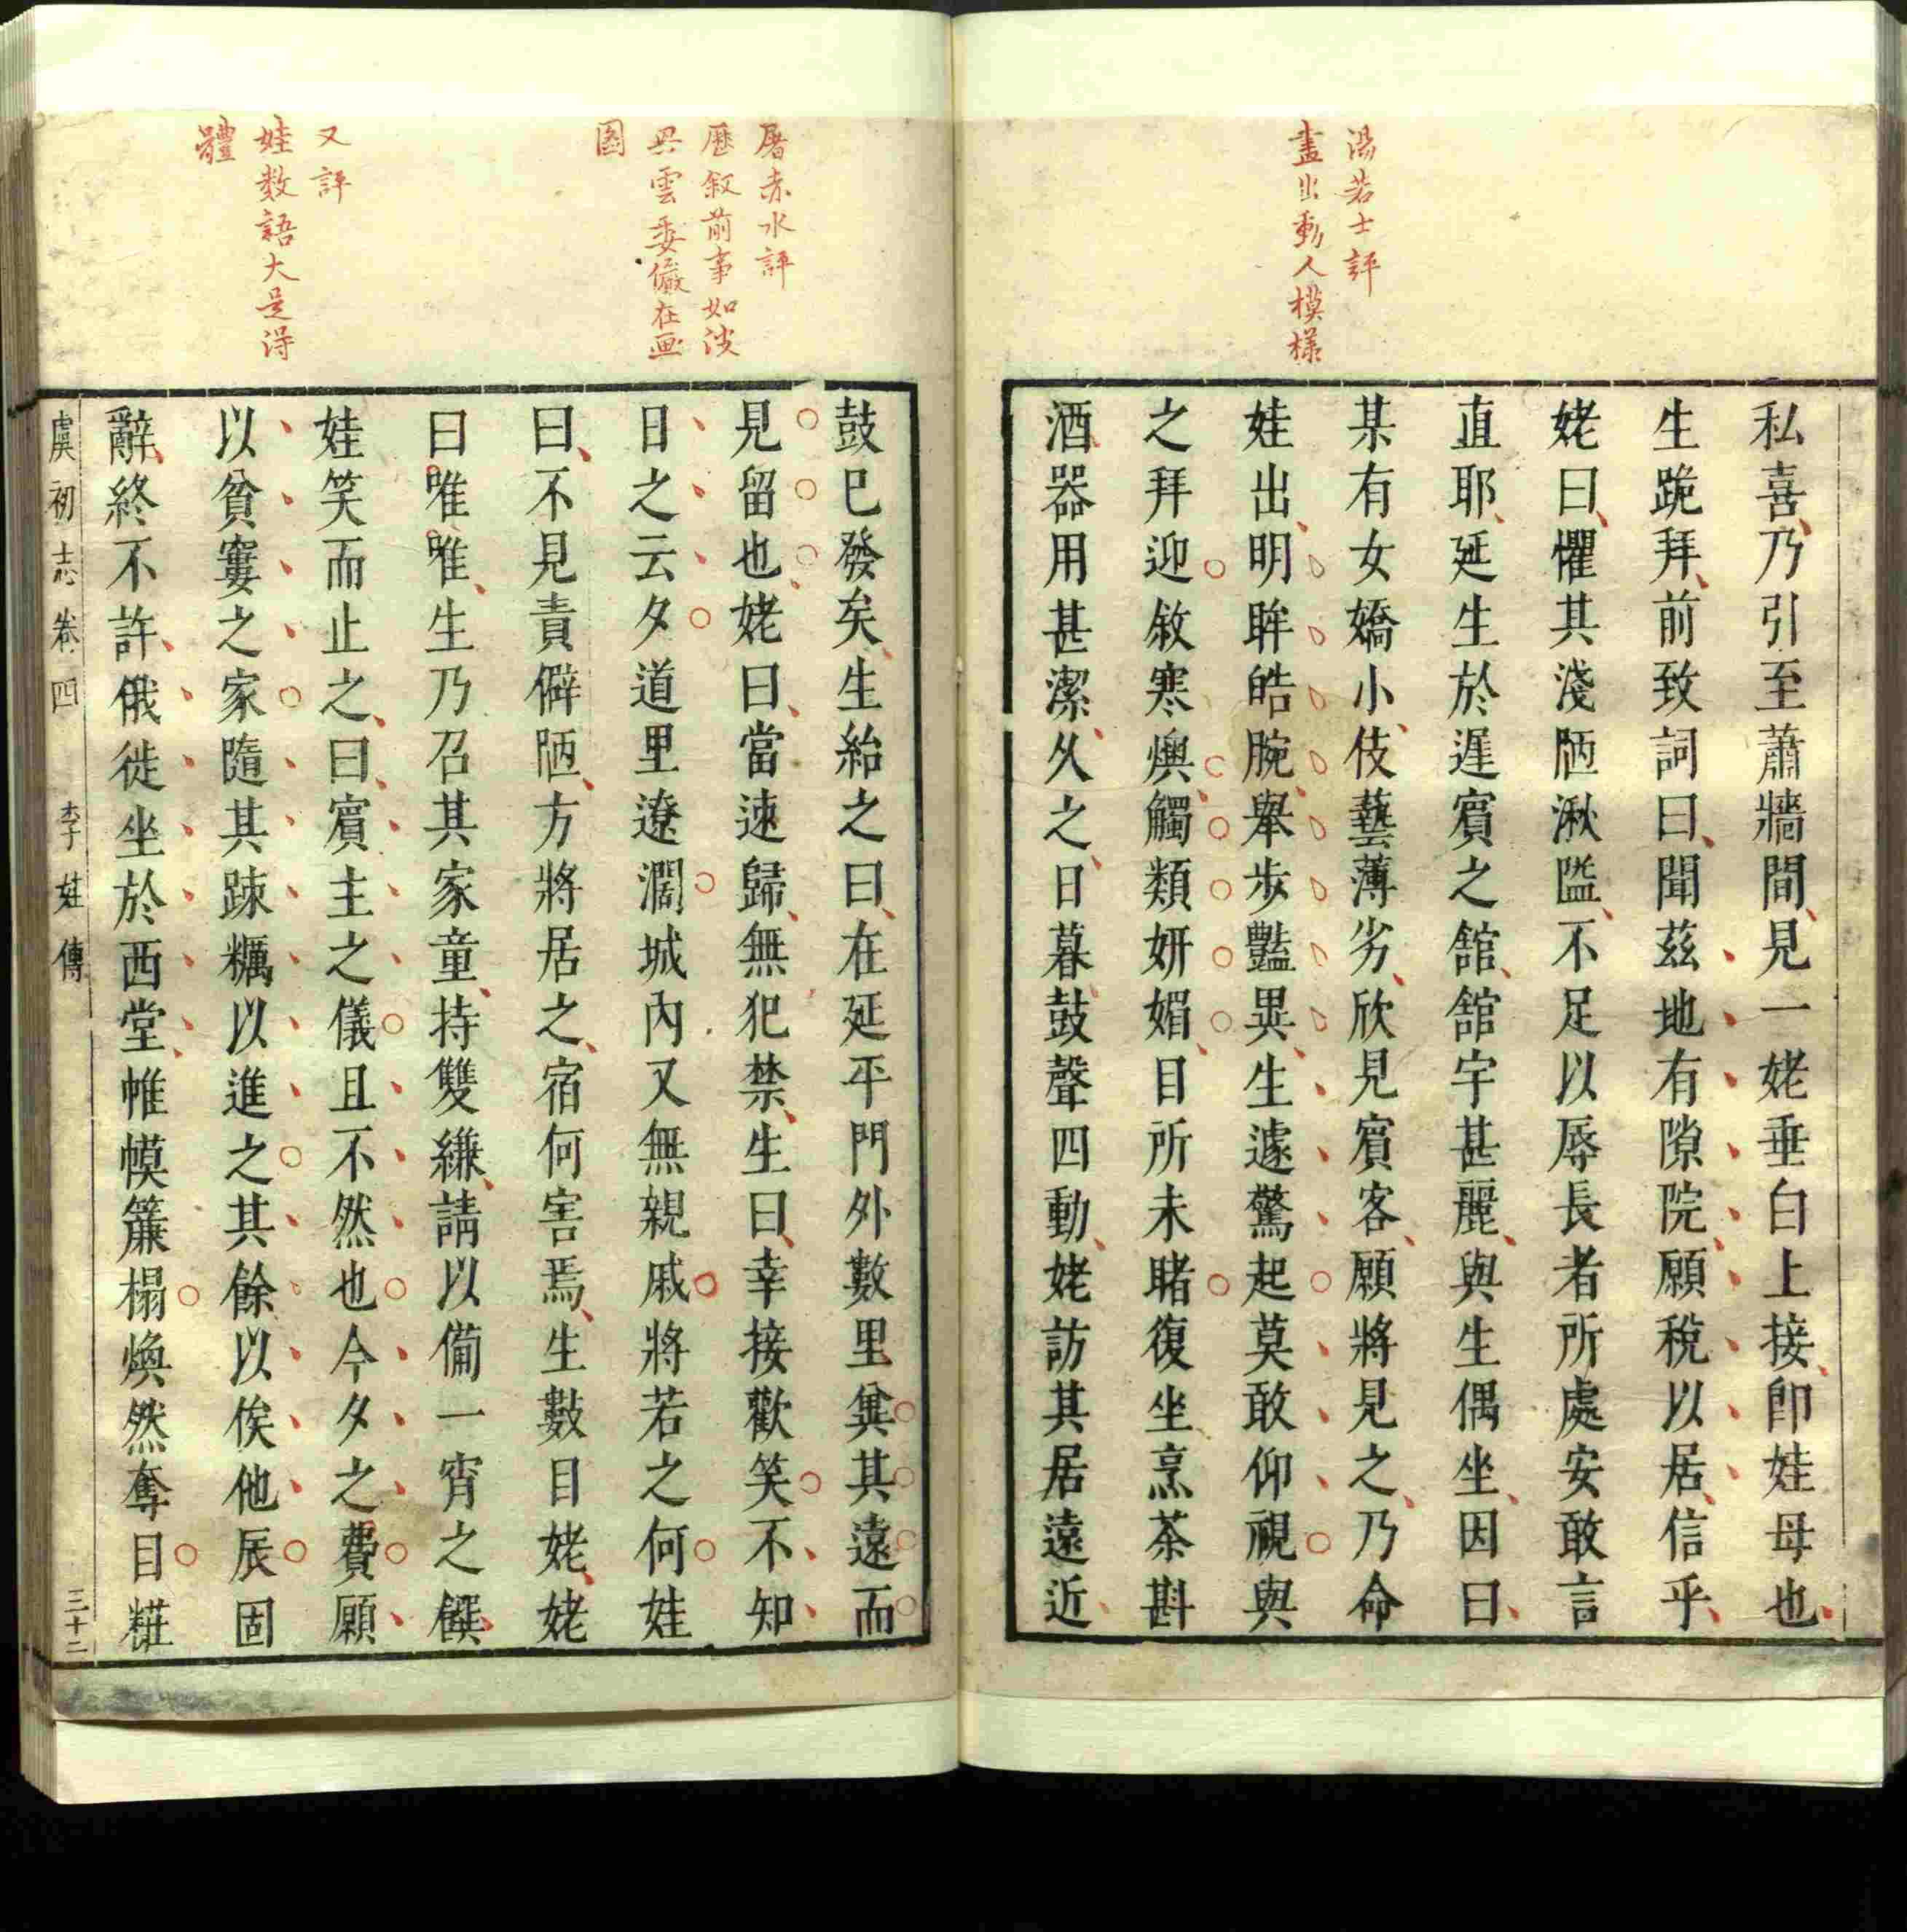 湯若士評
畫出動人模樣
私喜乃引至蕭牆間見一姥垂白上接卽娃母也
生跪拜前致詞曰聞茲地有隙院願稅以居信乎
姥曰懼其淺陋湫隘不足以辱長者所處安敢言
直耶延生於遲賓之館館宇甚麗與生偶坐因曰
某有女嬌小伎藝薄劣欣見賓客願將見之乃命
娃出明眸皓腕舉步豔異生遽驚起莫敢仰視與
之拜迎敘寒燠觸類妍媚目所未睹復坐烹茶斟
酒器用甚潔久之日暮鼓聲四動姥訪其居遠近
屠赤水評
歷叙前事如波
興雲委儼在画
圖
又評
娃数語大是得
體
鼓巳發矣生紿之曰在延平門外數里兾其遠而
見留也姥曰當速歸無犯禁生曰幸接歡笑不知
日之云夕道里遼濶城內又無親戚將若之何娃
曰不見責僻陋方將居之宿何害焉生數目姥姥
曰唯唯生乃召其家童持雙縑請以備一宵之饌
娃笑而止之曰賓主之儀且不然也今夕之費願
以貧窶之家隨其疎糲以進之其餘以俟他辰固
辭終不許俄徙坐於西堂帷幙簾榻煥然奪目糚
虞初志卷四 李娃傳 三十二